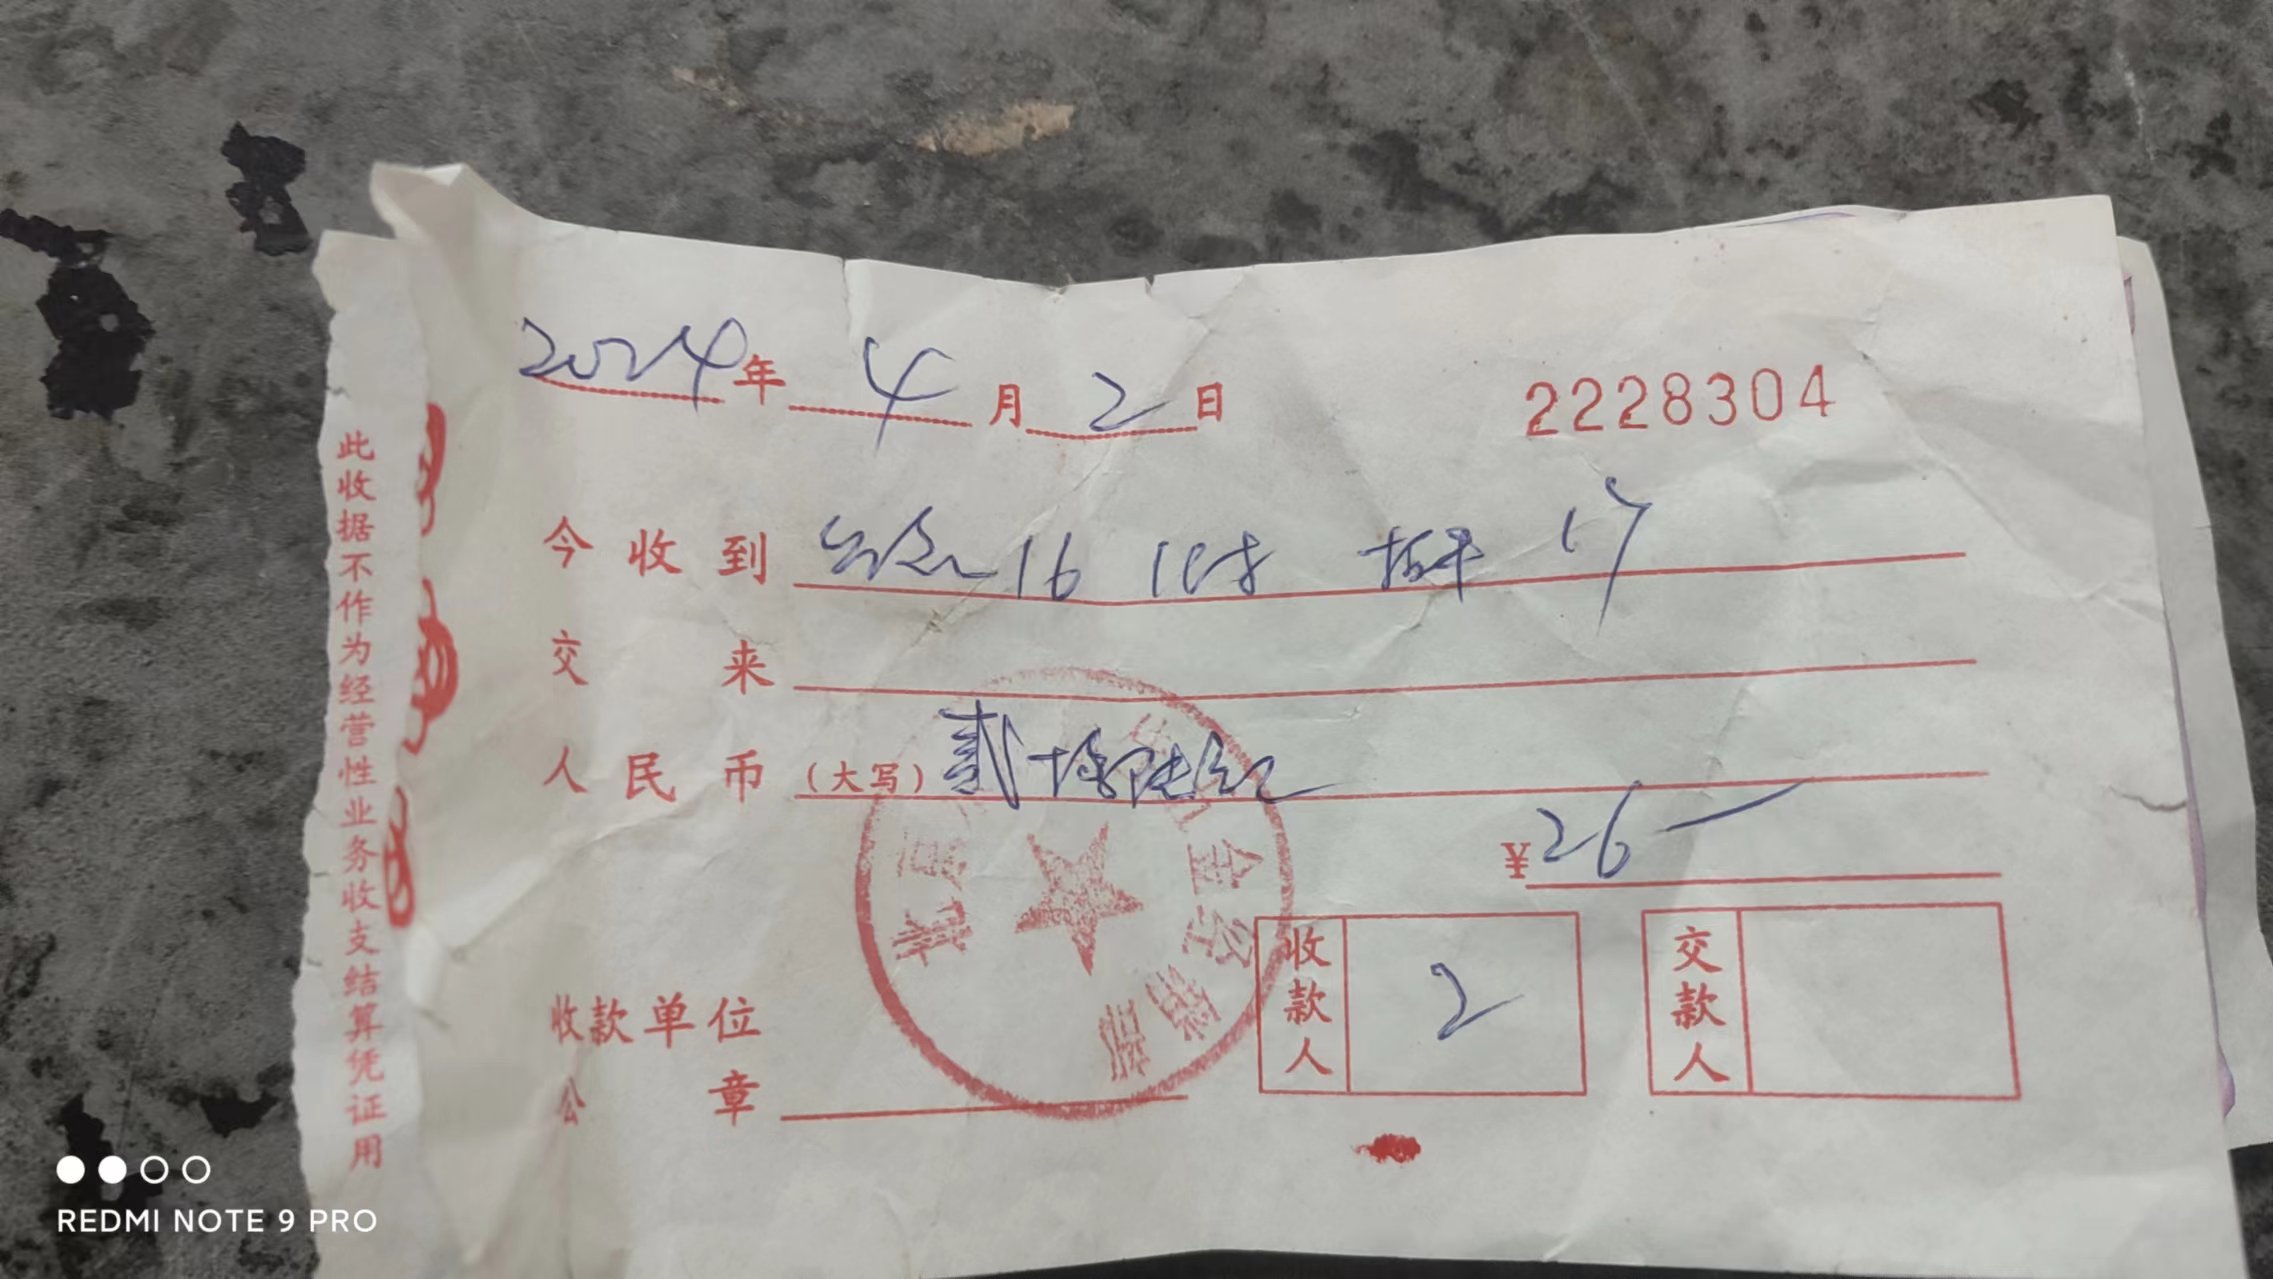 2024年4月2日
2228304
今收到 16 17
交来
人民币(大写)贰拾陆元
¥26
收款单位
公章
收款人 2
交款人
此收据不作为经营性业务收支结算凭证用
REDMI NOTE 9 PRO